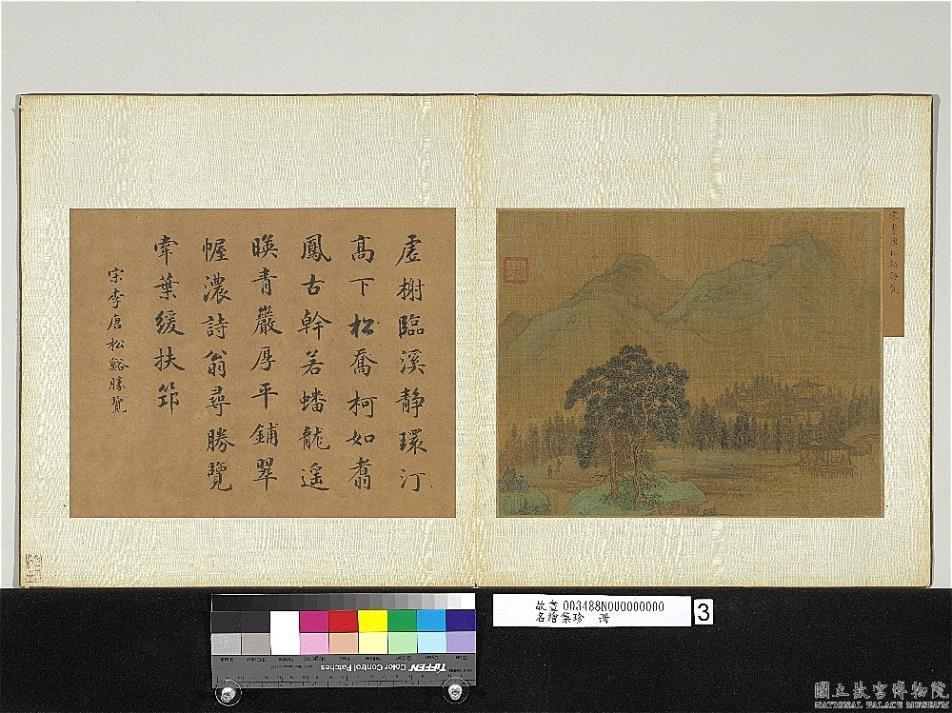 虚榭臨溪静環汀
高下松喬柯如翥
鳳古幹若蟠龍遥
暎青巖厚平鋪翠
幄濃詩翁尋勝覽
韋葉緩扶筇
宋李唐松谿勝覽
宋李唐松谿勝覽
故畫003488N000000000
名繪集珍
3
TIFFEN Color Control Patches
國立故宮博物院
NATIONAL PALACE MUSEUM